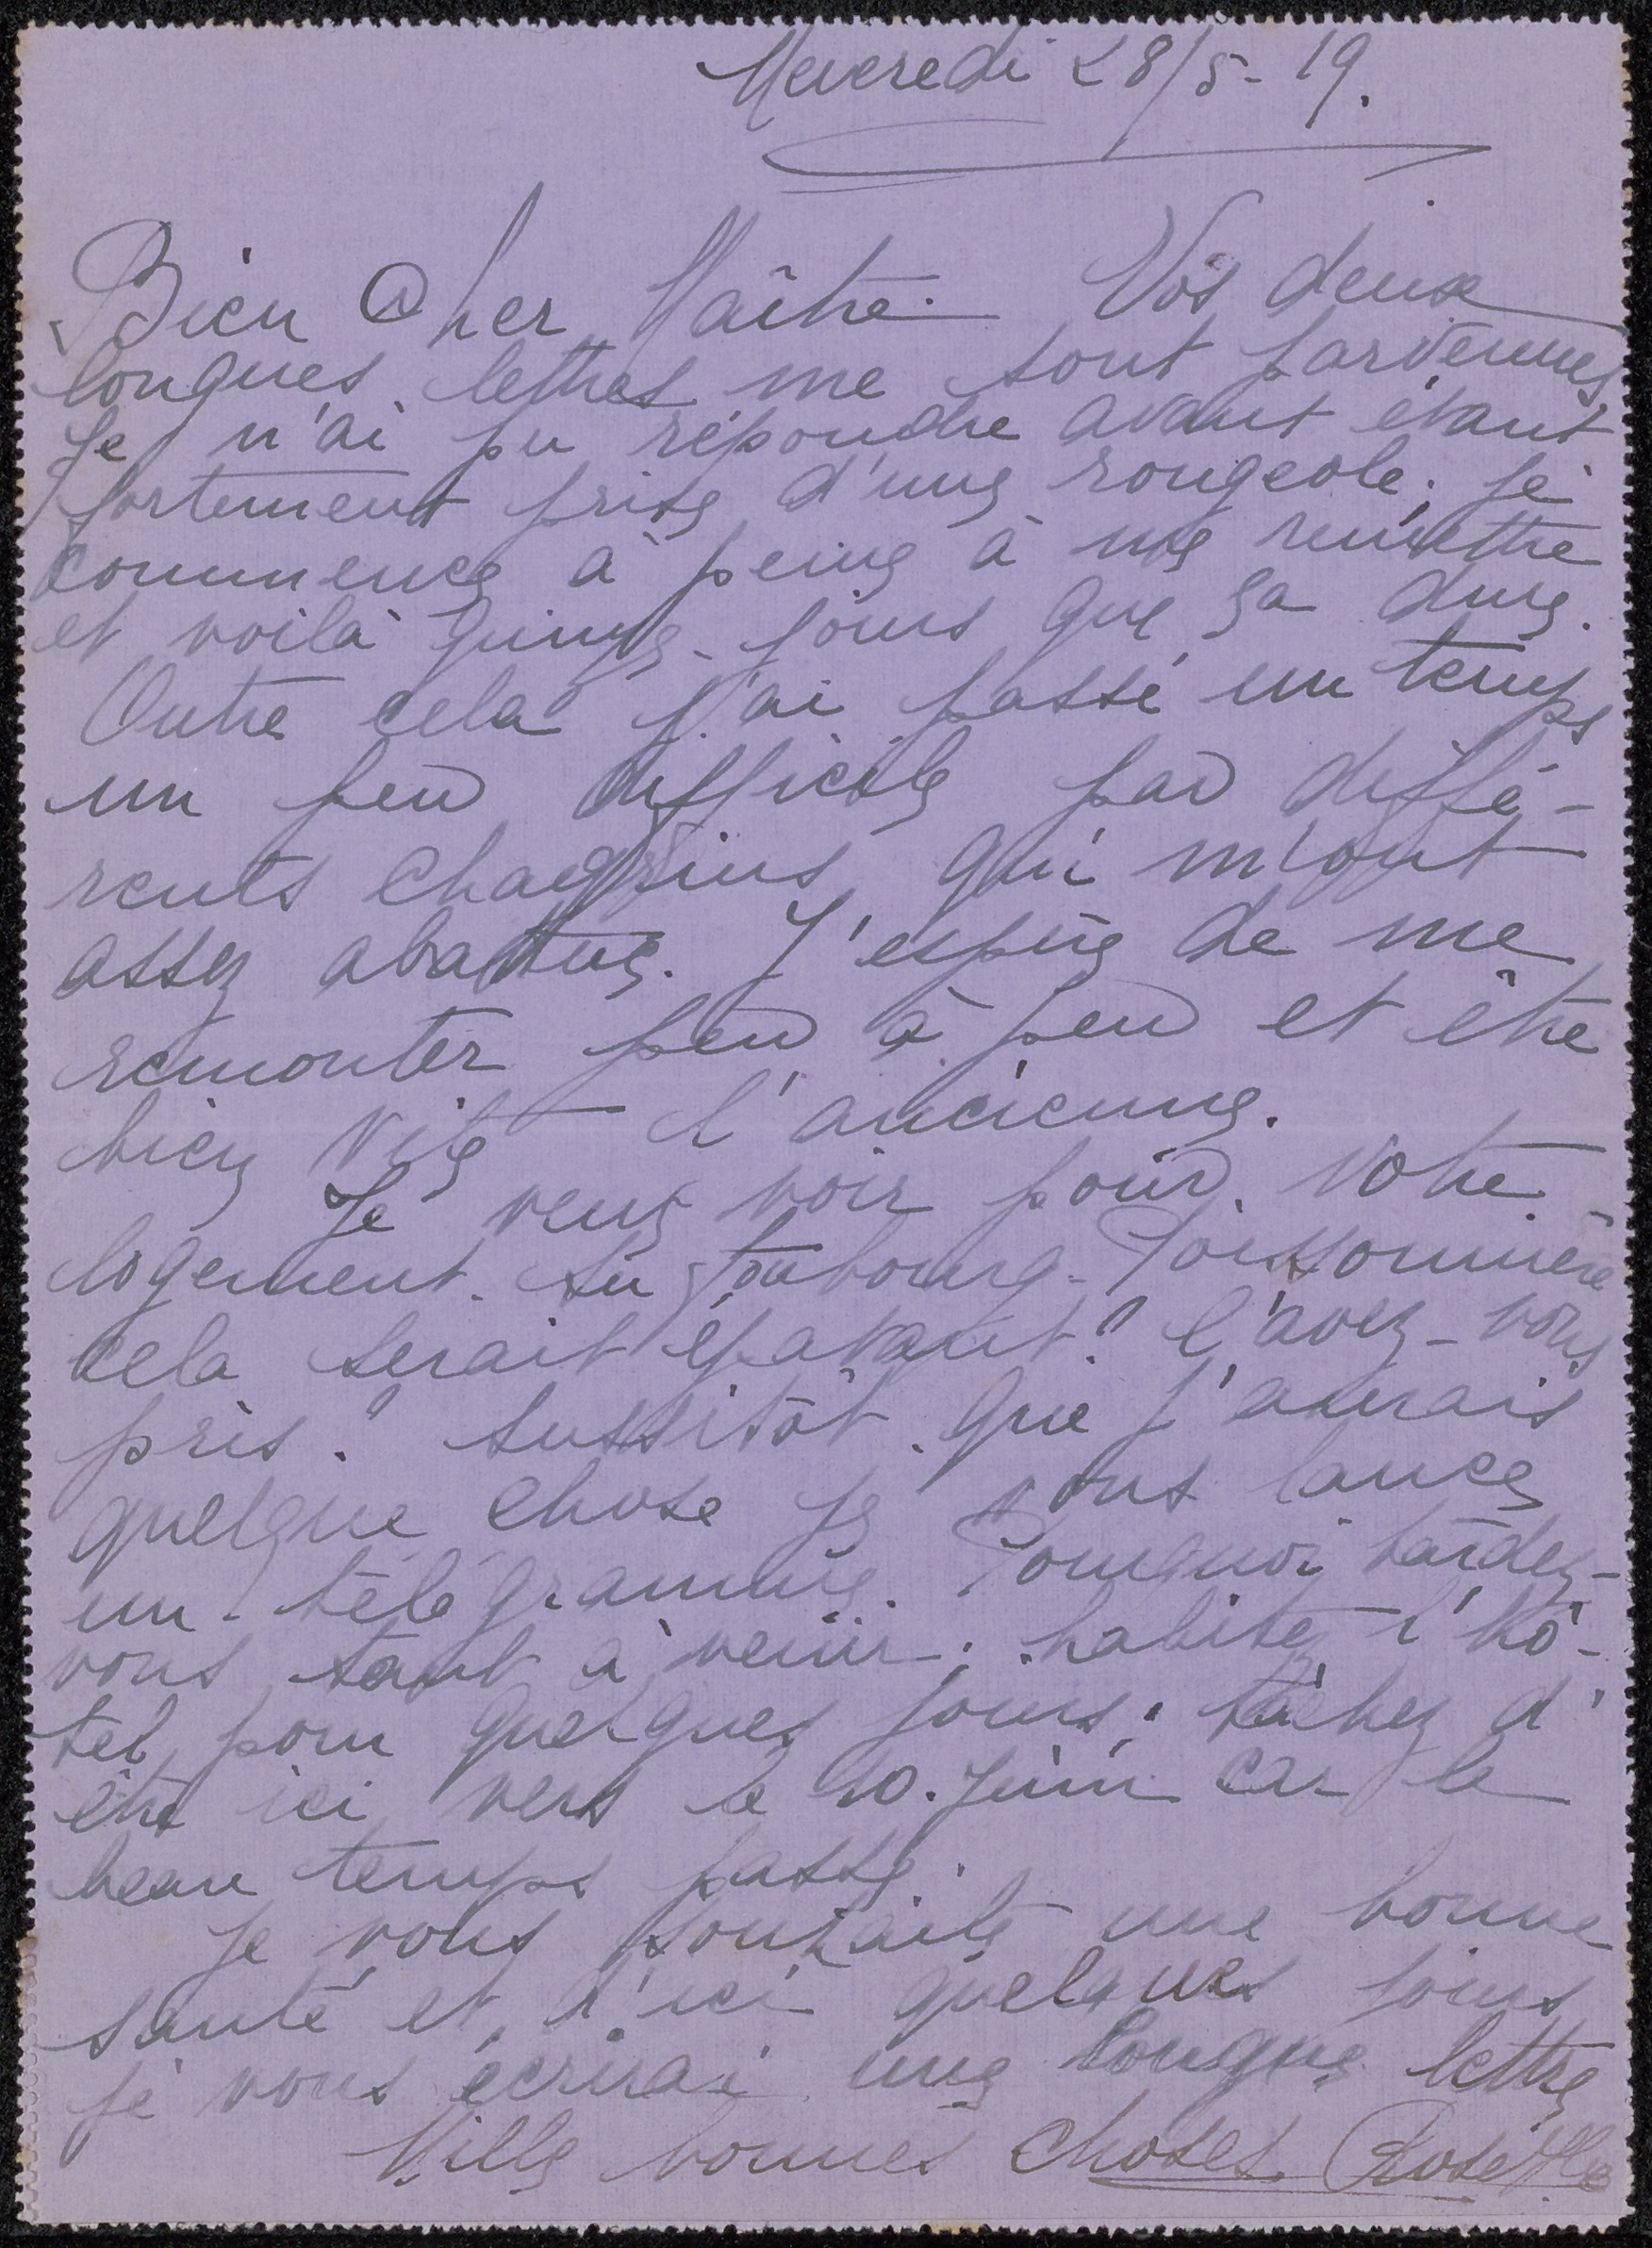 Mercredi 28/5-19.
Bien Cher Maître. Vos deux
longues lettres me sont parvenues,
Je n'ai pu répondre avant étant
fortement prise d'une rougeole; je
commence à peine à me remettre
et voilà quinze jours que ça dure.
Outre cela j'ai passé un temps
un peu difficile par diffé-
rents chagrins qui m'ont
assez abattue. J'espère de me
remonter peu à peu et être
bien vite l'ancienne.
Je veux voir pour votre
logement. Au faubourg-Poissonnière
cela serait épatant! l'avez-vous
pris? Aussitôt que j'aurais
quelque chose je vous lance
un télégramme. Pourquoi tardez-
vous tant à venir; habitez l'hô-
tel pour quelques jours; tâchez d'
être ici vers le 10. Juin car le
beau temps passe.
Je vous souhaite une bonne
santé et d'ici quelques jours
je vous écrirai une longue lettre
Mille bonnes choses Rosette